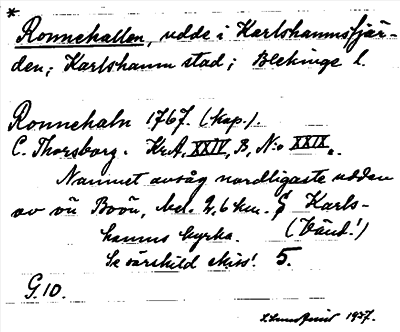 *
Ronnehallen, udde i Karlshamnsfjär-
den; Karlshamn stad; Blekinge l.
Ronnehaln 1767. (kap.).
C. Thorsborg. KrA, XXIV, B, N:o XXIX.
Namnet avsåg nordligaste udden
av ön Boön, bel. 2,6 km. S Karls-
hamns kyrka. (Vänd!)
Se särskild skiss! 5.
G.10.
1927.